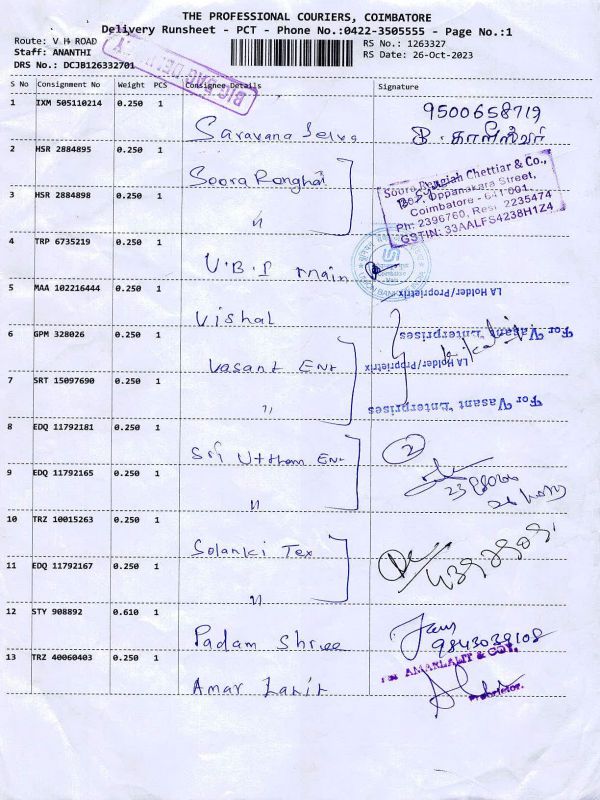 THE PROFESSIONAL COURIERS, COIMBATORE
Delivery Runsheet - PCT - Phone No.:0422-3505555 - Page No.:1
Route: V H ROAD
Staff: ANANTHI
DRS No.: DCJB126332701
RS No.: 1263327
RS Date: 26-Oct-2023
S No Consignment No Weight PCS Consignee Details Signature
1 IXM 505110214 0.250 1 Saravana Selva 9500658719
2 HSR 2884895 0.250 1 Soora Ranghai
Soora Rangiah Chettiar & Co.,
Oppanakara Street,
Coimbatore - 641 001.
Ph: 2396760, Resi: 2235474
GSTIN: 33AALFS4238H1Z4
3 HSR 2884898 0.250 1 "
4 TRP 6735219 0.250 1 U.B.I main
5 MAA 102216444 0.250 1 Vishal
LA Holder/Proprietrix
For Vasant Enterprises
6 GPM 328026 0.250 1 Vasant Ent
LA Holder/Proprietrix
7 SRT 15097690 0.250 1 "
For Vasant Enterprises
8 EDQ 11792181 0.250 1 Sri Uttham Ent 2
9 EDQ 11792165 0.250 1 "
10 TRZ 10015263 0.250 1 Solanki Tex
11 EDQ 11792167 0.250 1 "
12 STY 908892 0.610 1 Padam Shree 9843039108
13 TRZ 40060403 0.250 1 Amar Lalit
For AMARLALIT & COY.
Proprietor.